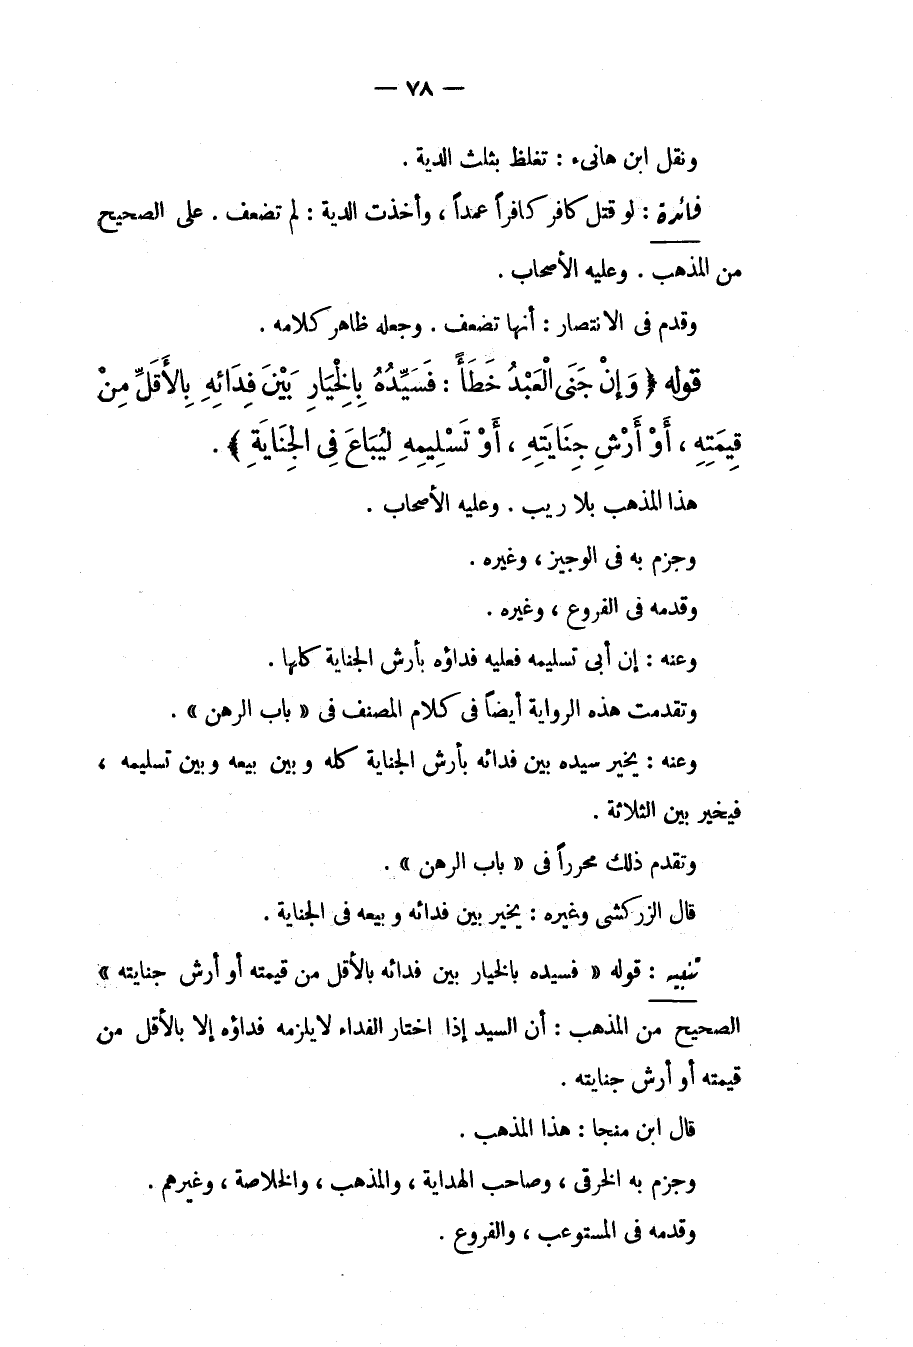 — ٧٨ —
ونقل ابن هانىء : تغلظ بثلث الدية .
فائدة : لو قتل كافر كافراً عمداً ، وأخذت الدية : لم تضعف . على الصحيح
من المذهب . وعليه الأصحاب .
وقدم فى الانتصار : أنها تضعف . وجعله ظاهر كلامه .
قوله ﴿ وَإِنْ جَنَى الْعَبْدُ خَطَأً : فَسَيِّدُهُ بِالْخِيَارِ بَيْنَ فِدَائِهِ بِالأَقَلِّ مِنْ
قِيمَتِهِ ، أَوْ أَرْشِ جِنَايَتِهِ ، أَوْ تَسْلِيمِهِ لِيُبَاعَ فِى الجِنَايَةِ ﴾ .
هذا المذهب بلا ريب . وعليه الأصحاب .
وجزم به فى الوجيز ، وغيره .
وقدمه فى الفروع ، وغيره .
وعنه : إن أبى تسليمه فعليه فداؤه بأرش الجناية كلها .
وتقدمت هذه الرواية أيضاً فى كلام المصنف فى « باب الرهن » .
وعنه : يخير سيده بين فدائه بأرش الجناية كله وبين بيعه وبين تسليمه ،
فيخير بين الثلاثة .
وتقدم ذلك محرراً فى « باب الرهن » .
قال الزركشى وغيره : يخير بين فدائه وبيعه فى الجناية .
تنبيه : قوله « فسيده بالخيار بين فدائه بالأقل من قيمته أو أرش جنايته »
الصحيح من المذهب : أن السيد إذا اختار الفداء لايلزمه فداؤه إلا بالأقل من
قيمته أو أرش جنايته .
قال ابن منجا : هذا المذهب .
وجزم به الخرقى ، وصاحب الهداية ، والمذهب ، والخلاصة ، وغيرهم .
وقدمه فى المستوعب ، والفروع .